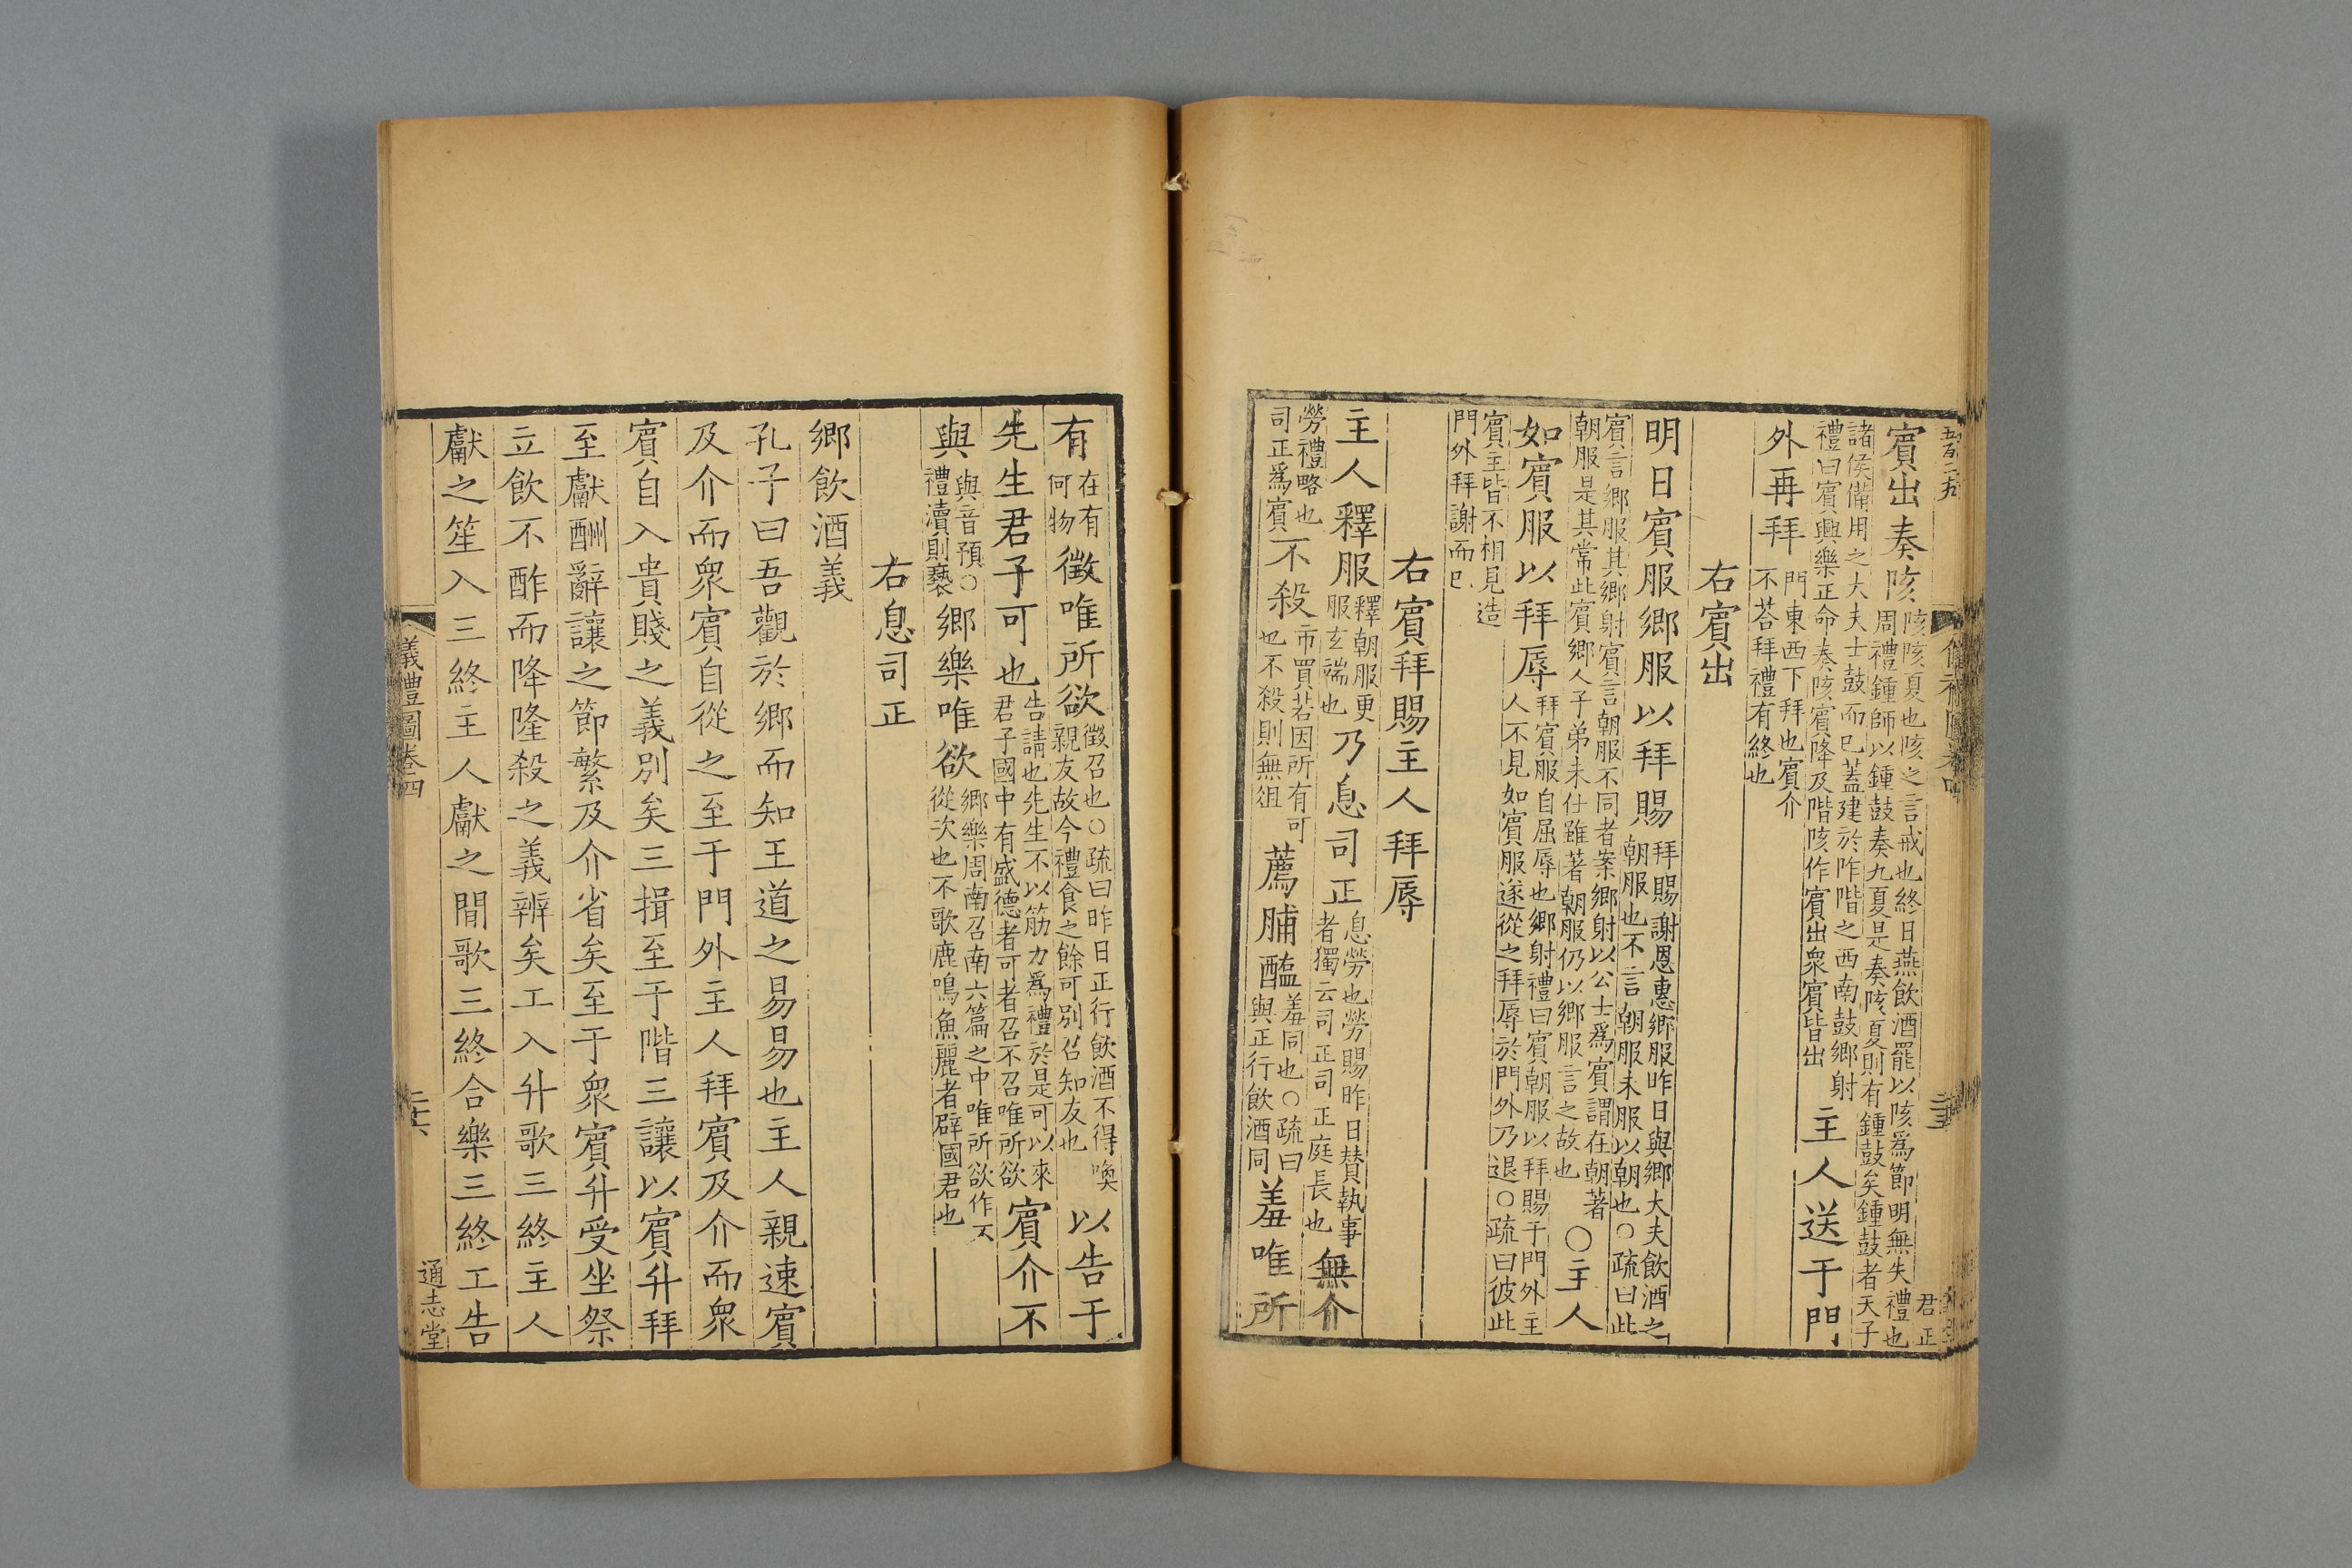 賓出奏陔陔陔夏也陔之言戒也終日燕飲酒罷以陔爲節明無失禮也周禮鍾師以鍾鼓奏九夏是奏陔夏則有鍾鼓矣鍾鼓者天子
諸侯備用之大夫士鼓而已蓋建於阼階之西南鼓鄉射禮曰賓興樂正命奏陔賓降及階陔作賓出衆賓皆出主人送于門
外再拜門東西下拜也賓介不荅拜禮有終也
右賓出
明日賓服鄉服以拜賜拜賜謝恩惠鄉服昨日與鄉大夫飲酒之朝服也不言朝服未服以朝也○疏曰此
賓言鄉服其鄉射賓言朝服不同者案鄉射以公士爲賓謂在朝著朝服是其常此賓鄉人子弟未仕雖著朝服仍以鄉服言之故也○主人
如賓服以拜辱拜賓服自屈辱也鄉射禮曰賓朝服以拜賜于門外主人不見如賓服遂從之拜辱於門外乃退○疏曰彼此
賓主皆不相見造門外拜謝而已
右賓拜賜主人拜辱
主人釋服釋朝服更服玄端也乃息司正息勞也勞賜昨日賛執事者獨云司正司正庭長也無介
勞禮略也司正爲賓不殺市買若因所有可也不殺則無俎薦脯醢羞同也○疏曰與正行飲酒同羞唯所
君正
有在有何物徵唯所欲徵召也○疏曰昨日正行飲酒不得喚親友故今禮食之餘可別召知友也以告于
先生君子可也告請也先生不以筋力爲禮於是可以來君子國中有盛德者可者召不召唯所欲賓介不
與與音預○禮瀆則褻鄉樂唯欲鄉樂周南召南六篇之中唯所欲作不從次也不歌鹿鳴魚麗者辟國君也
右息司正
鄉飲酒義
孔子曰吾觀於鄉而知王道之易易也主人親速賓
及介而衆賓自從之至于門外主人拜賓及介而衆
賓自入貴賤之義別矣三揖至于階三讓以賓升拜
至獻酬辭讓之節繁及介省矣至于衆賓升受坐祭
立飲不酢而降隆殺之義辨矣工入升歌三終主人
獻之笙入三終主人獻之閒歌三終合樂三終工告
儀禮圖卷四
二十六
通志堂